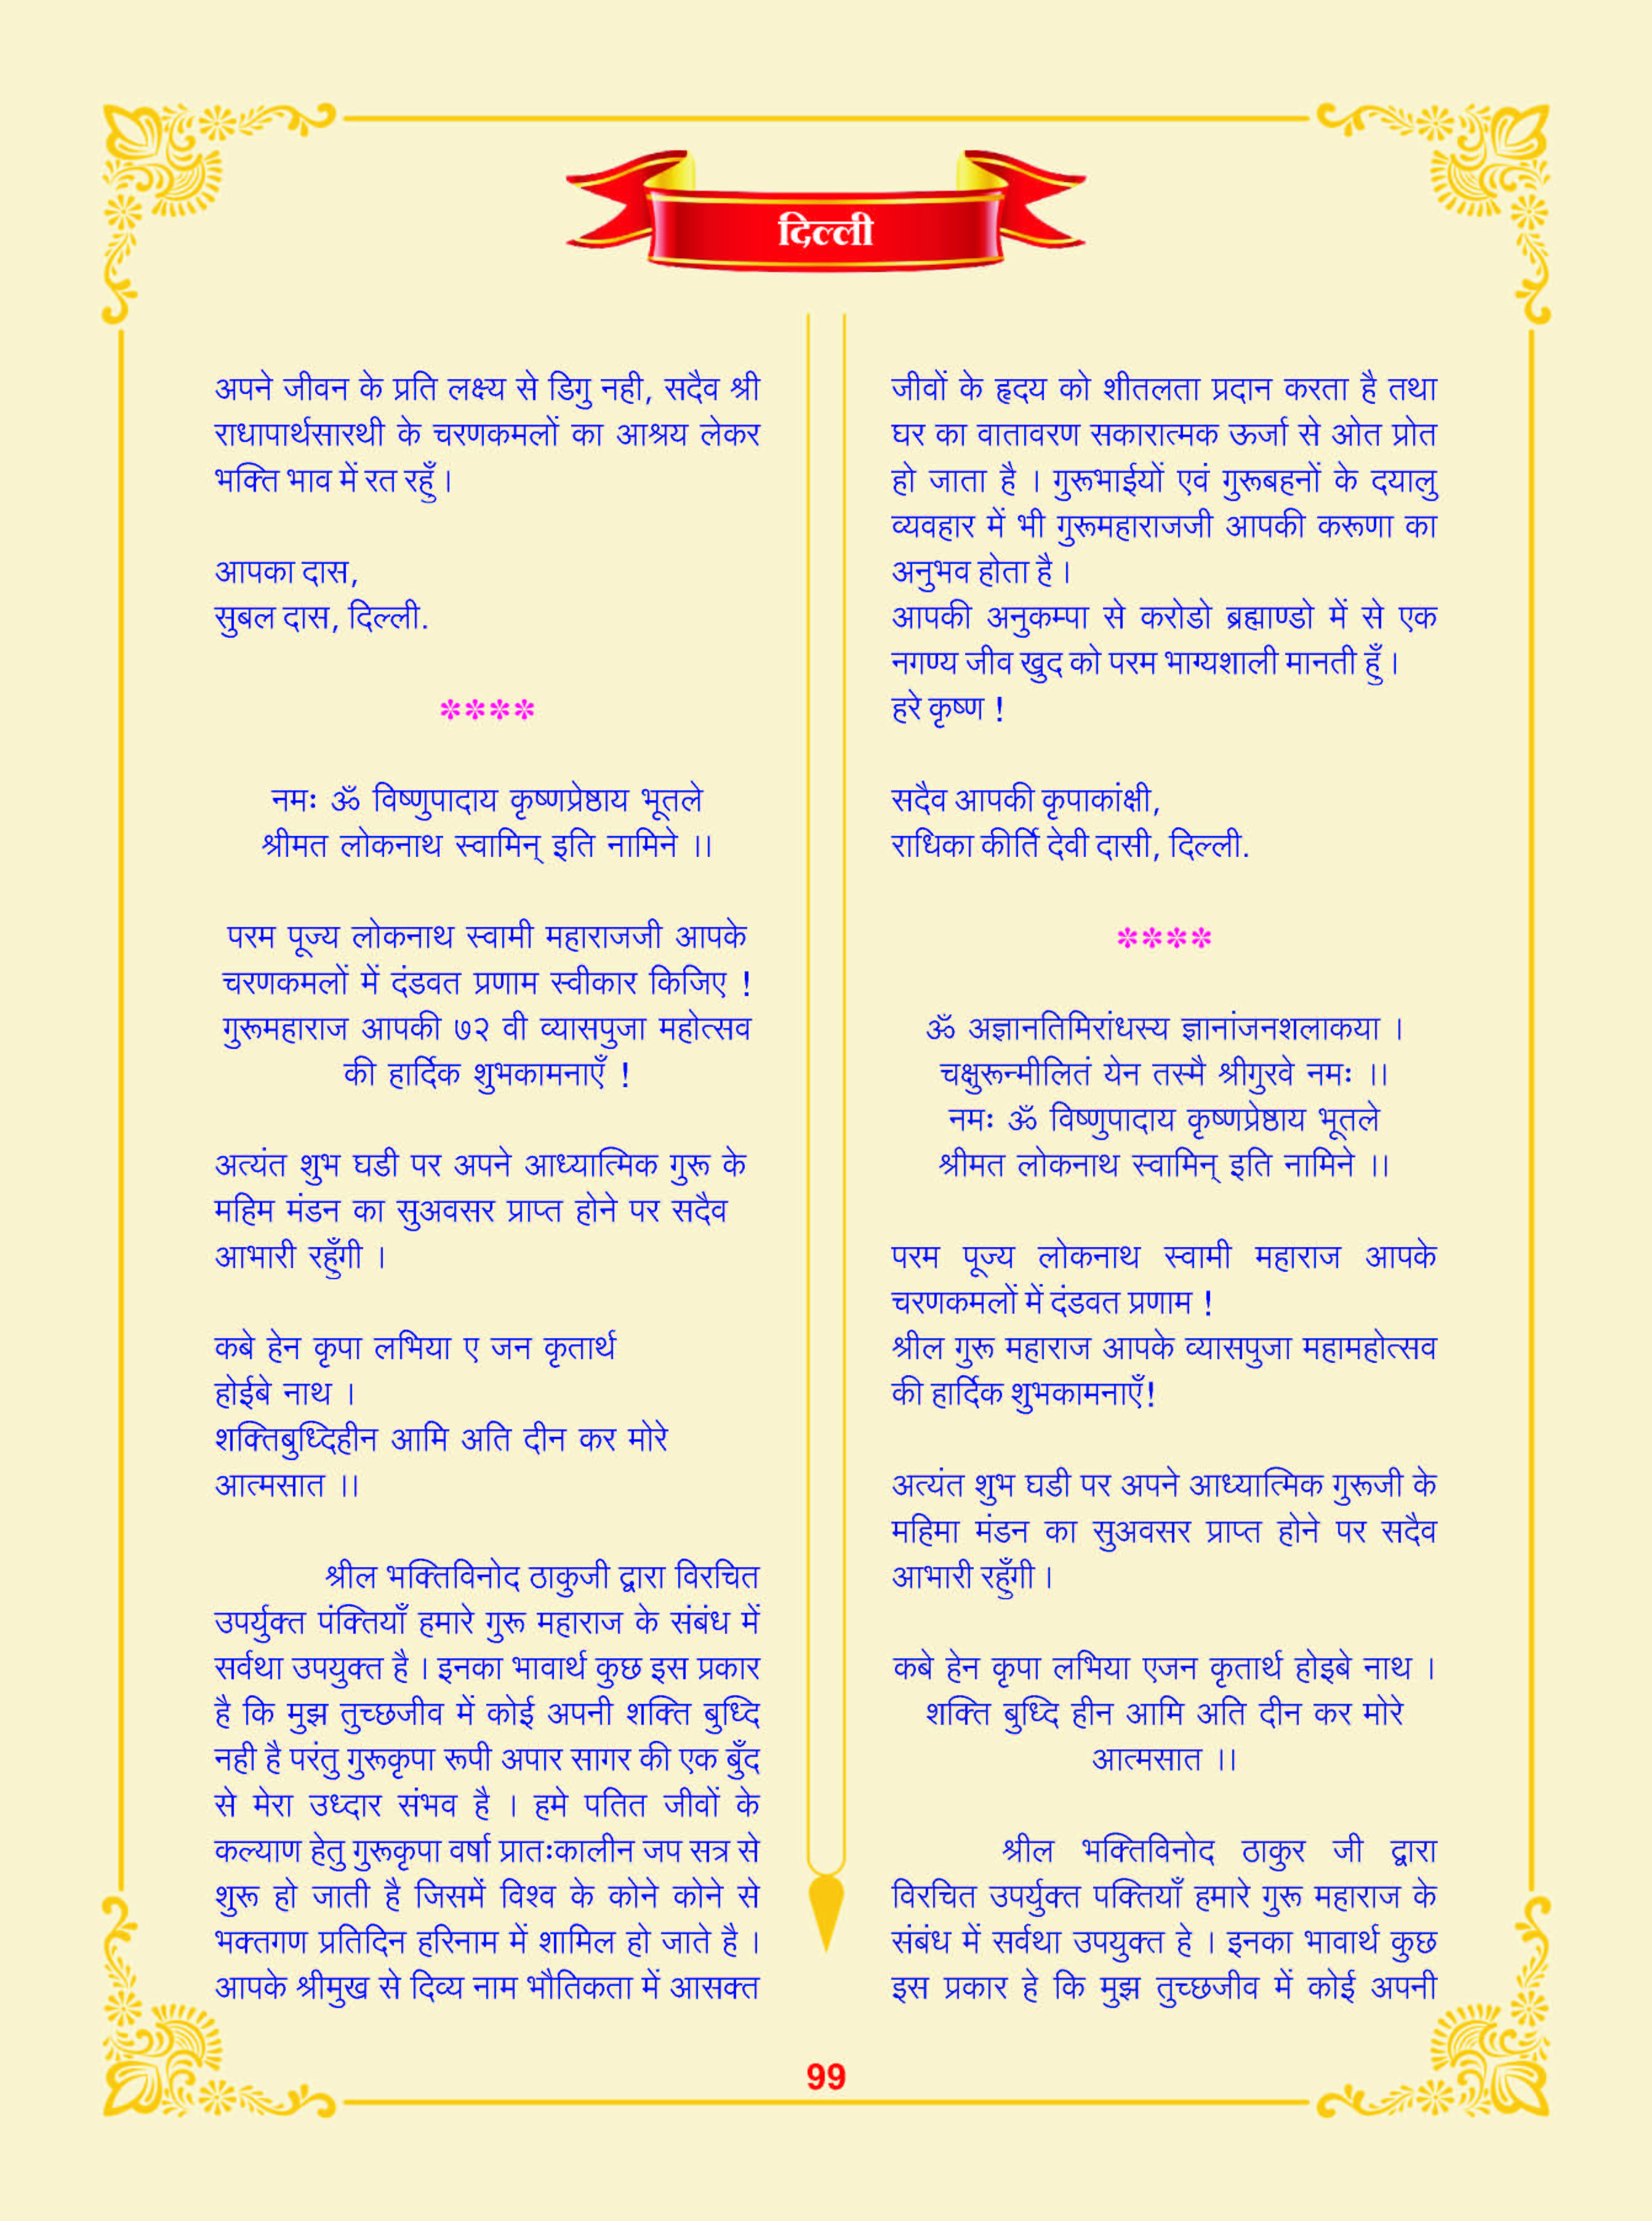 दिल्ली
अपने जीवन के प्रति लक्ष्य से डिगु नही, सदैव श्री
राधापार्थसारथी के चरणकमलों का आश्रय लेकर
भक्ति भाव में रत रहुँ।
आपका दास,
सुबल दास, दिल्ली.
****
नमः ॐ विष्णुपादाय कृष्णप्रेष्ठाय भूतले
श्रीमत लोकनाथ स्वामिन् इति नामिने ।।
परम पूज्य लोकनाथ स्वामी महाराजजी आपके
चरणकमलों में दंडवत प्रणाम स्वीकार किजिए !
गुरूमहाराज आपकी ७२ वी व्यासपुजा महोत्सव
की हार्दिक शुभकामनाएँ !
अत्यंत शुभ घडी पर अपने आध्यात्मिक गुरू के
महिम मंडन का सुअवसर प्राप्त होने पर सदैव
आभारी रहुँगी ।
कबे हेन कृपा लभिया ए जन कृतार्थ
होईबे नाथ ।
शक्तिबुध्दिहीन आमि अति दीन कर मोरे
आत्मसात ।।
श्रील भक्तिविनोद ठाकुजी द्वारा विरचित
उपर्युक्त पंक्तियाँ हमारे गुरू महाराज के संबंध में
सर्वथा उपयुक्त है । इनका भावार्थ कुछ इस प्रकार
है कि मुझ तुच्छजीव में कोई अपनी शक्ति बुध्दि
नही है परंतु गुरूकृपा रूपी अपार सागर की एक बुँद
से मेरा उध्दार संभव है । हमे पतित जीवों के
कल्याण हेतु गुरूकृपा वर्षा प्रातःकालीन जप सत्र से
शुरू हो जाती है जिसमें विश्व के कोने कोने से
भक्तगण प्रतिदिन हरिनाम में शामिल हो जाते है ।
आपके श्रीमुख से दिव्य नाम भौतिकता में आसक्त
जीवों के हृदय को शीतलता प्रदान करता है तथा
घर का वातावरण सकारात्मक ऊर्जा से ओत प्रोत
हो जाता है । गुरूभाईयों एवं गुरूबहनों के दयालु
व्यवहार में भी गुरूमहाराजजी आपकी करूणा का
अनुभव होता है ।
आपकी अनुकम्पा से करोडो ब्रह्माण्डो में से एक
नगण्य जीव खुद को परम भाग्यशाली मानती हुँ ।
हरे कृष्ण !
सदैव आपकी कृपाकांक्षी,
राधिका कीर्ति देवी दासी, दिल्ली.
****
ॐ अज्ञानतिमिरांधस्य ज्ञानांजनशलाकया ।
चक्षुरून्मीलितं येन तस्मै श्रीगुरवे नमः ।।
नमः ॐ विष्णुपादाय कृष्णप्रेष्ठाय भूतले
श्रीमत लोकनाथ स्वामिन् इति नामिने ।।
परम पूज्य लोकनाथ स्वामी महाराज आपके
चरणकमलों में दंडवत प्रणाम !
श्रील गुरू महाराज आपके व्यासपुजा महामहोत्सव
की हार्दिक शुभकामनाएँ!
अत्यंत शुभ घडी पर अपने आध्यात्मिक गुरूजी के
महिमा मंडन का सुअवसर प्राप्त होने पर सदैव
आभारी रहुँगी ।
कबे हेन कृपा लभिया एजन कृतार्थ होइबे नाथ ।
शक्ति बुध्दि हीन आमि अति दीन कर मोरे
आत्मसात ।।
श्रील भक्तिविनोद ठाकुर जी द्वारा
विरचित उपर्युक्त पक्तियाँ हमारे गुरू महाराज के
संबंध में सर्वथा उपयुक्त हे । इनका भावार्थ कुछ
इस प्रकार हे कि मुझ तुच्छजीव में कोई अपनी
99